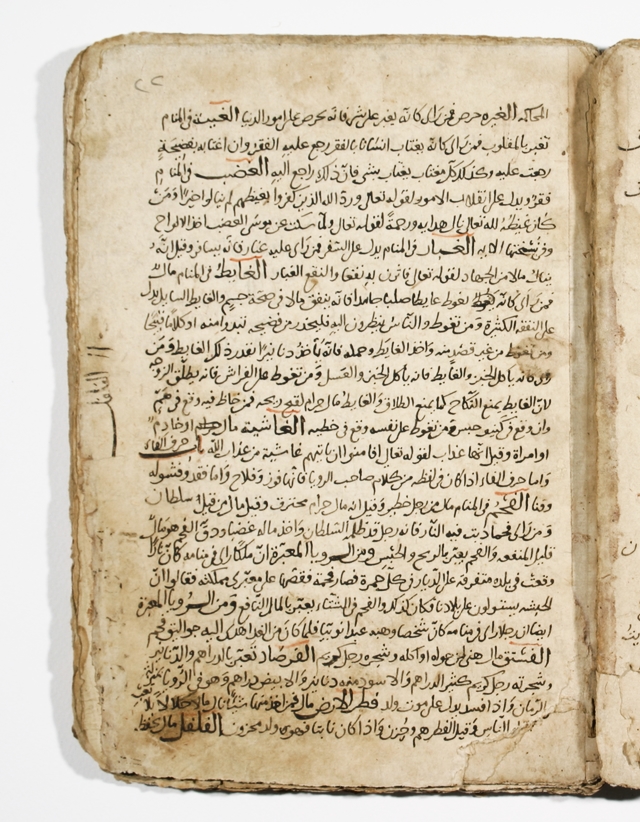 ٢٢
المحاكمة الغيرة حرص فمن رأى كانه يغير على شي فانه يحرص على امور الدنيا الغيبة في المنام
تعبر بالمقلوب فمن رأى كانه يغتاب انسانا بالفقر رجع عليه الفقر وان اغتابه بفضيحة
رجعت عليه وكذلك كل مغتاب يغتاب بشي فان ذلك راجع اليه الغضب في المنام
فقر ويدل على انقلاب الامور لقوله تعالى ورد الله الذين كفروا بغيظهم لم ينالوا خيرا ومن
كان غيظه لله تعالى نال هداية ورحمة لقوله تعالى ولما سكت عن موسى الغضب اخذ الالواح
وفي نسختها الاية الغبار في المنام يدل على السفر فمن رأى عليه غبار فانه يسافر وقيل انه
ينال مالا من الجهاد لقوله تعالى فاثرن به نقعا والنقع الغبار الغايط في المنام مال
فمن رأى كانه تغوط غايطا صلبا جامدا فانه ينفق مالا في صحة جسم والغايط السايل يدل
على النفقة الكثيرة ومن تغوط والناس ينظرون اليه فليحذر من فضيحة تبدو منه او كلاما قبيحا
ومن تغوط من غير قصد منه واخذ الغايط وحمله فانه ياخذ دنانيرا بقدر ذلك الغايط ومن
رأى كانه ياكل الخبز والغايط فانه ياكل الخبز والعسل ومن تغوط على الفراش فانه يطلق الزوجه
لان الغايط يمنع النكاح كما يمنع الطلاق والغايط مال حرام لقبح ريحه فمن خاط فيه وقع في هم
وان وقع في كنيف حبس ومن تغوط على نفسه وقع في خطيه الغاشية مال او خادم
او امراة وقيل انها عذاب لقوله تعالى افامنوا ان ياتيهم غاشية من عذاب الله باب حرف الفاء
واما حرف الفاء اذا كان في لفظه من كلام صاحب الرويا فانها فوز وفلاح واما فقد وفشوله
وفنا الفحم في المنام مال من رجل خطير وقيل انه مال حرام محترف وقيل مال من قبل سلطان
ومن رأى فحما دبت فيه النار فانه رجل قد ظلمه السلطان واخذ ماله غصبا ودق الفحم هو مال
قليل المنفعة والفحم يعبر بالريح والحبس ومن الرويا المعبرة ان ملكا راى في منامه كأن نارا
وقعت في بلاده متفرقة على الديار في كل جمرة فصار فحمة فقصها على معبري مملكته فقالوا ان
الحبشه يستولون على بلادنا فكان كذلك والفحم في الشتاء يعبر بالمال النافع ومن الرويا المعبرة
ايضا ان رجلا راى في منامه كأن شخصا وهبه عبدا نوبيا فلما كان من الغد اهدى اليه جوالق فحم
الفستق مال هني لمن حوله او اكله وشجره رجل كريم الفرصاد تعبر بالدراهم والدنانير
وشجرته رجل كريم كثير الدراهم والاسود منه دنانير والابيض دراهم وهو في الرويا
قطر الارض مال
الناس وقيل الفطر هم وحزن واذا كان نابتا فهو ولد محزون الفلفل مال يحفظ